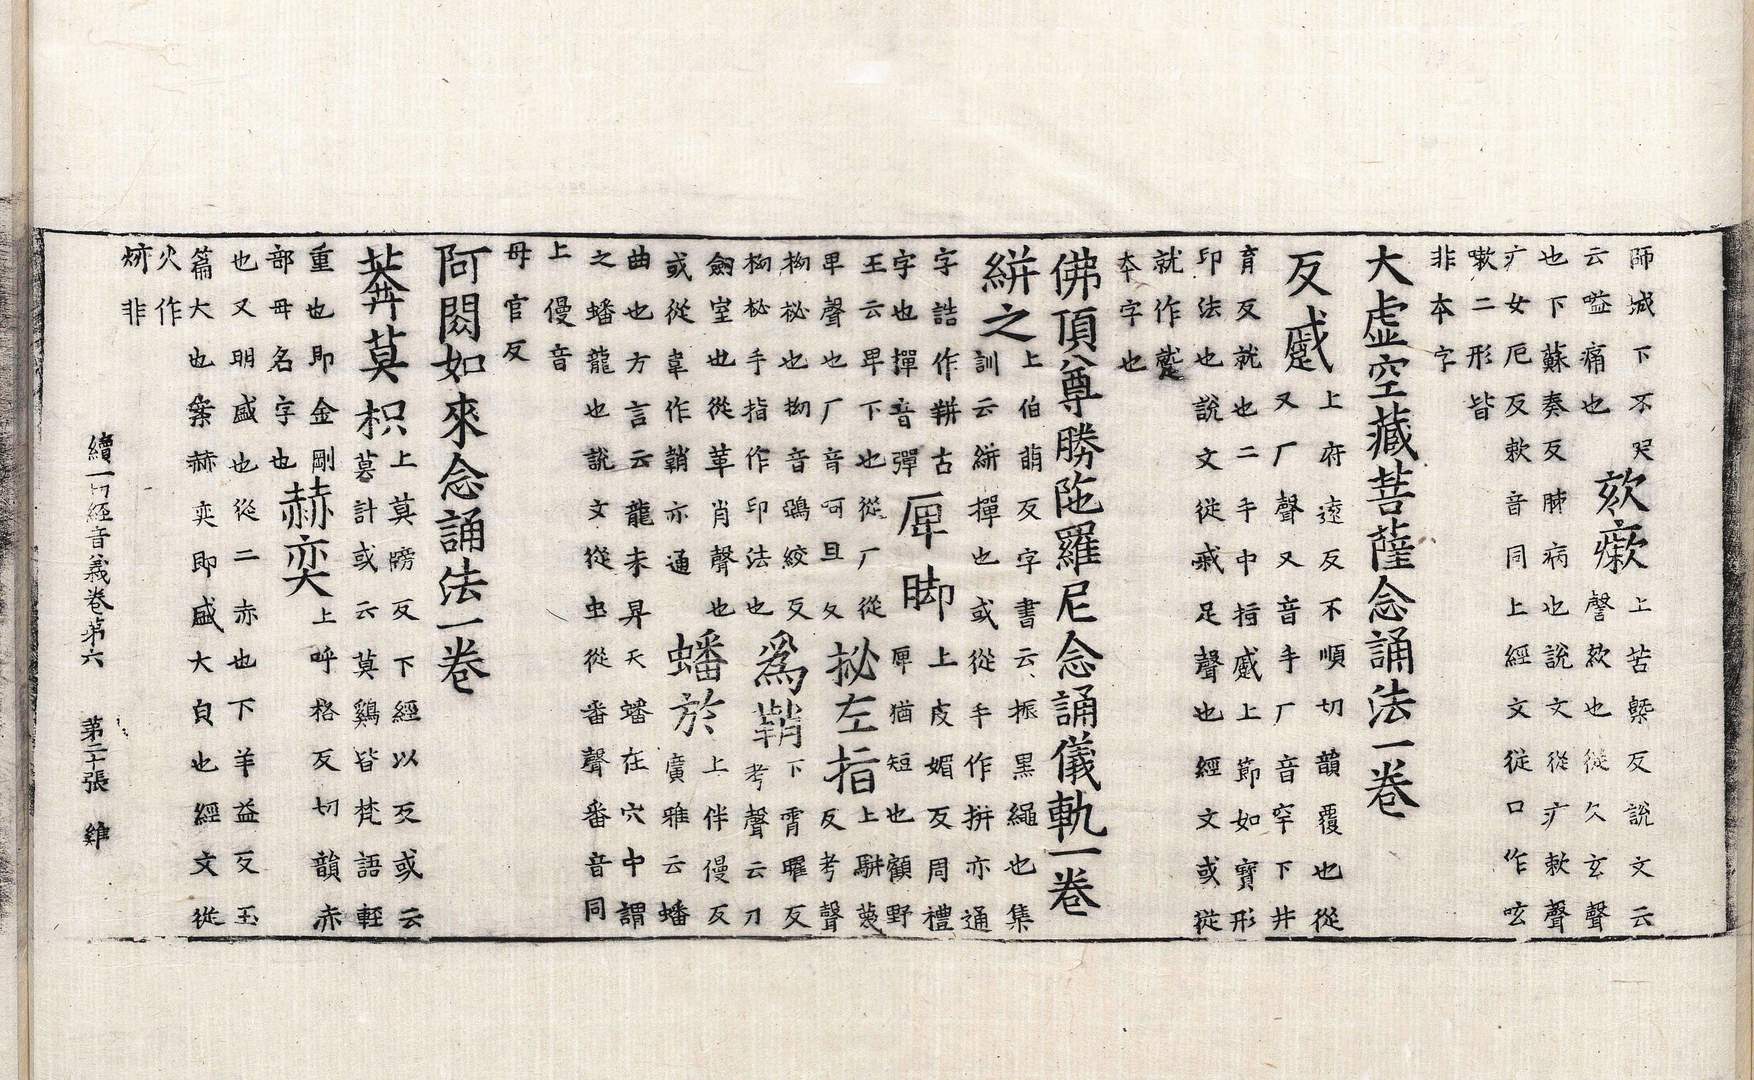 師城下不哭
云嗌痛也
欬瘶
上苦槩反說文云
謦欬也從欠亥聲
也下蘇奏反肺病也說文從疒欶聲
疒女厄反欶音同上經文從口作咳
嗽二形皆
非本字
大虛空藏菩薩念誦法一卷
反蹙
上府遠反不順切韻覆也從
又厂聲又音手厂音罕下井
育反就也二手中指蹙上節如寶形
印法也說文從戚足聲也經文或從
就作蹵
本字也
佛頂尊勝陁羅尼念誦儀軌一卷
絣之
上伯萌反字書云振黑繩也集
訓云絣撣也或從手作拼亦通
字誥作古
字也撣音彈
厗脚
上皮媚反周禮
厗猶短也顧野
王云卑下也從厂從
卑聲也厂音呵旦反
拗左指
上駢蔑
反考聲
拗柲也拗音鵶絞反
柲手指作印法也
爲鞘
下霄曜反
考聲云刀
劒室也從革肖聲也
或從韋作鞘亦通
蟠於
上伴僈反
廣雅云蟠
曲也方言云龍未昇天蟠在穴中謂
之蟠龍也說文從虫從番聲番音同
上僈音
母官反
阿閦如來念誦法一卷
莾莫枳
上莫牓反下經以反或云
墓計或云莫鷄皆梵語輕
重也即金剛
部母名字也
赫奕
上呼格反切韻赤
也又明盛也從二赤也下羊益反玉
篇大也案赫奕即盛大皃也經文從
火作
焃非
續一切經音義卷第六 第二十張 雞